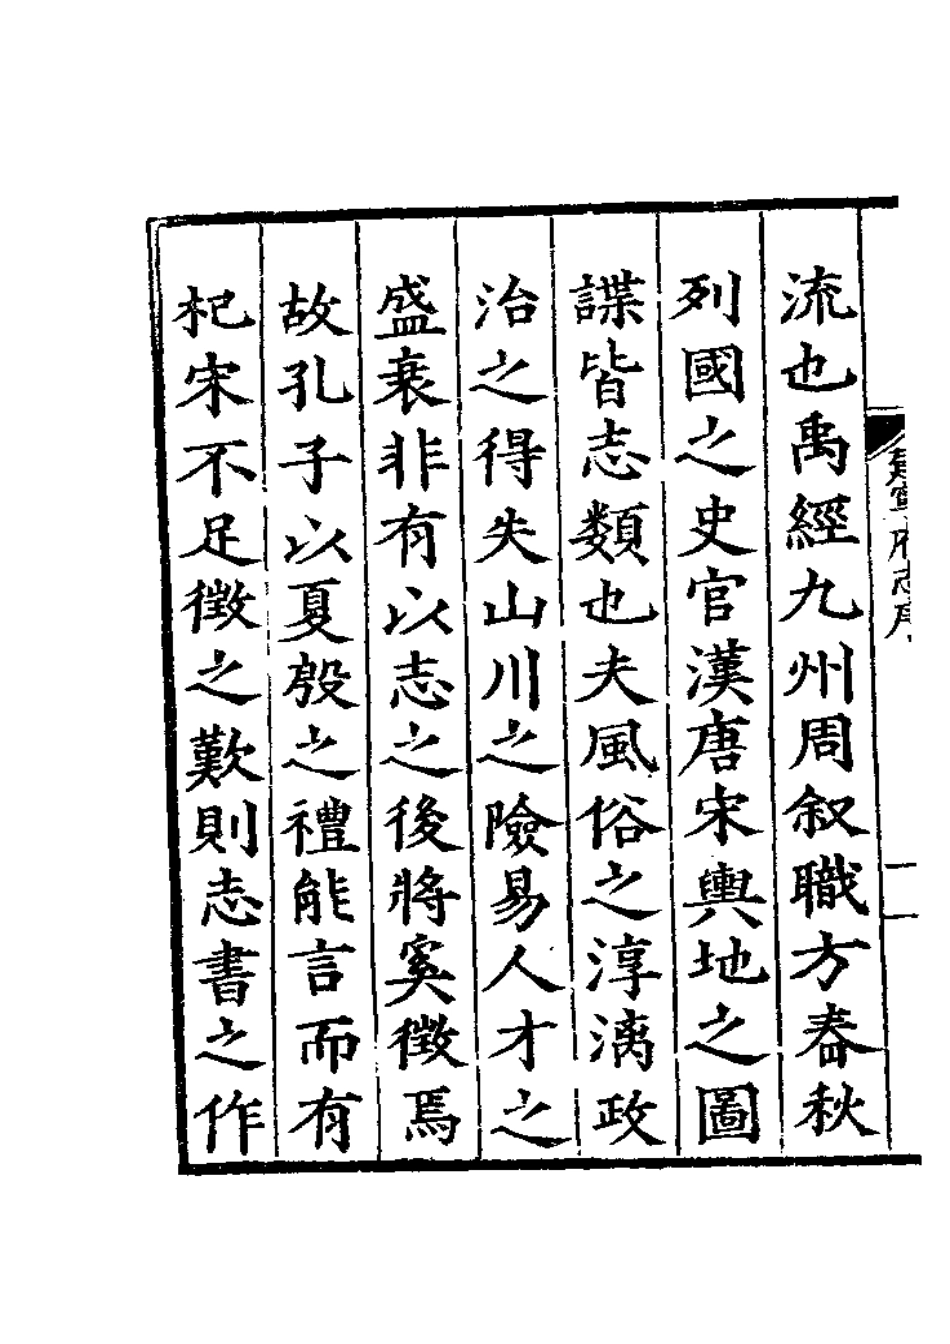 建寧府志序
流也禹經九州周叙職方春秋
列國之史官漢唐宋輿地之圖
諜皆志類也夫風俗之淳漓政
治之得失山川之險易人才之
盛衰非有以志之後將奚徵焉
故孔子以夏殷之禮能言而有
杞宋不足徵之歎則志書之作